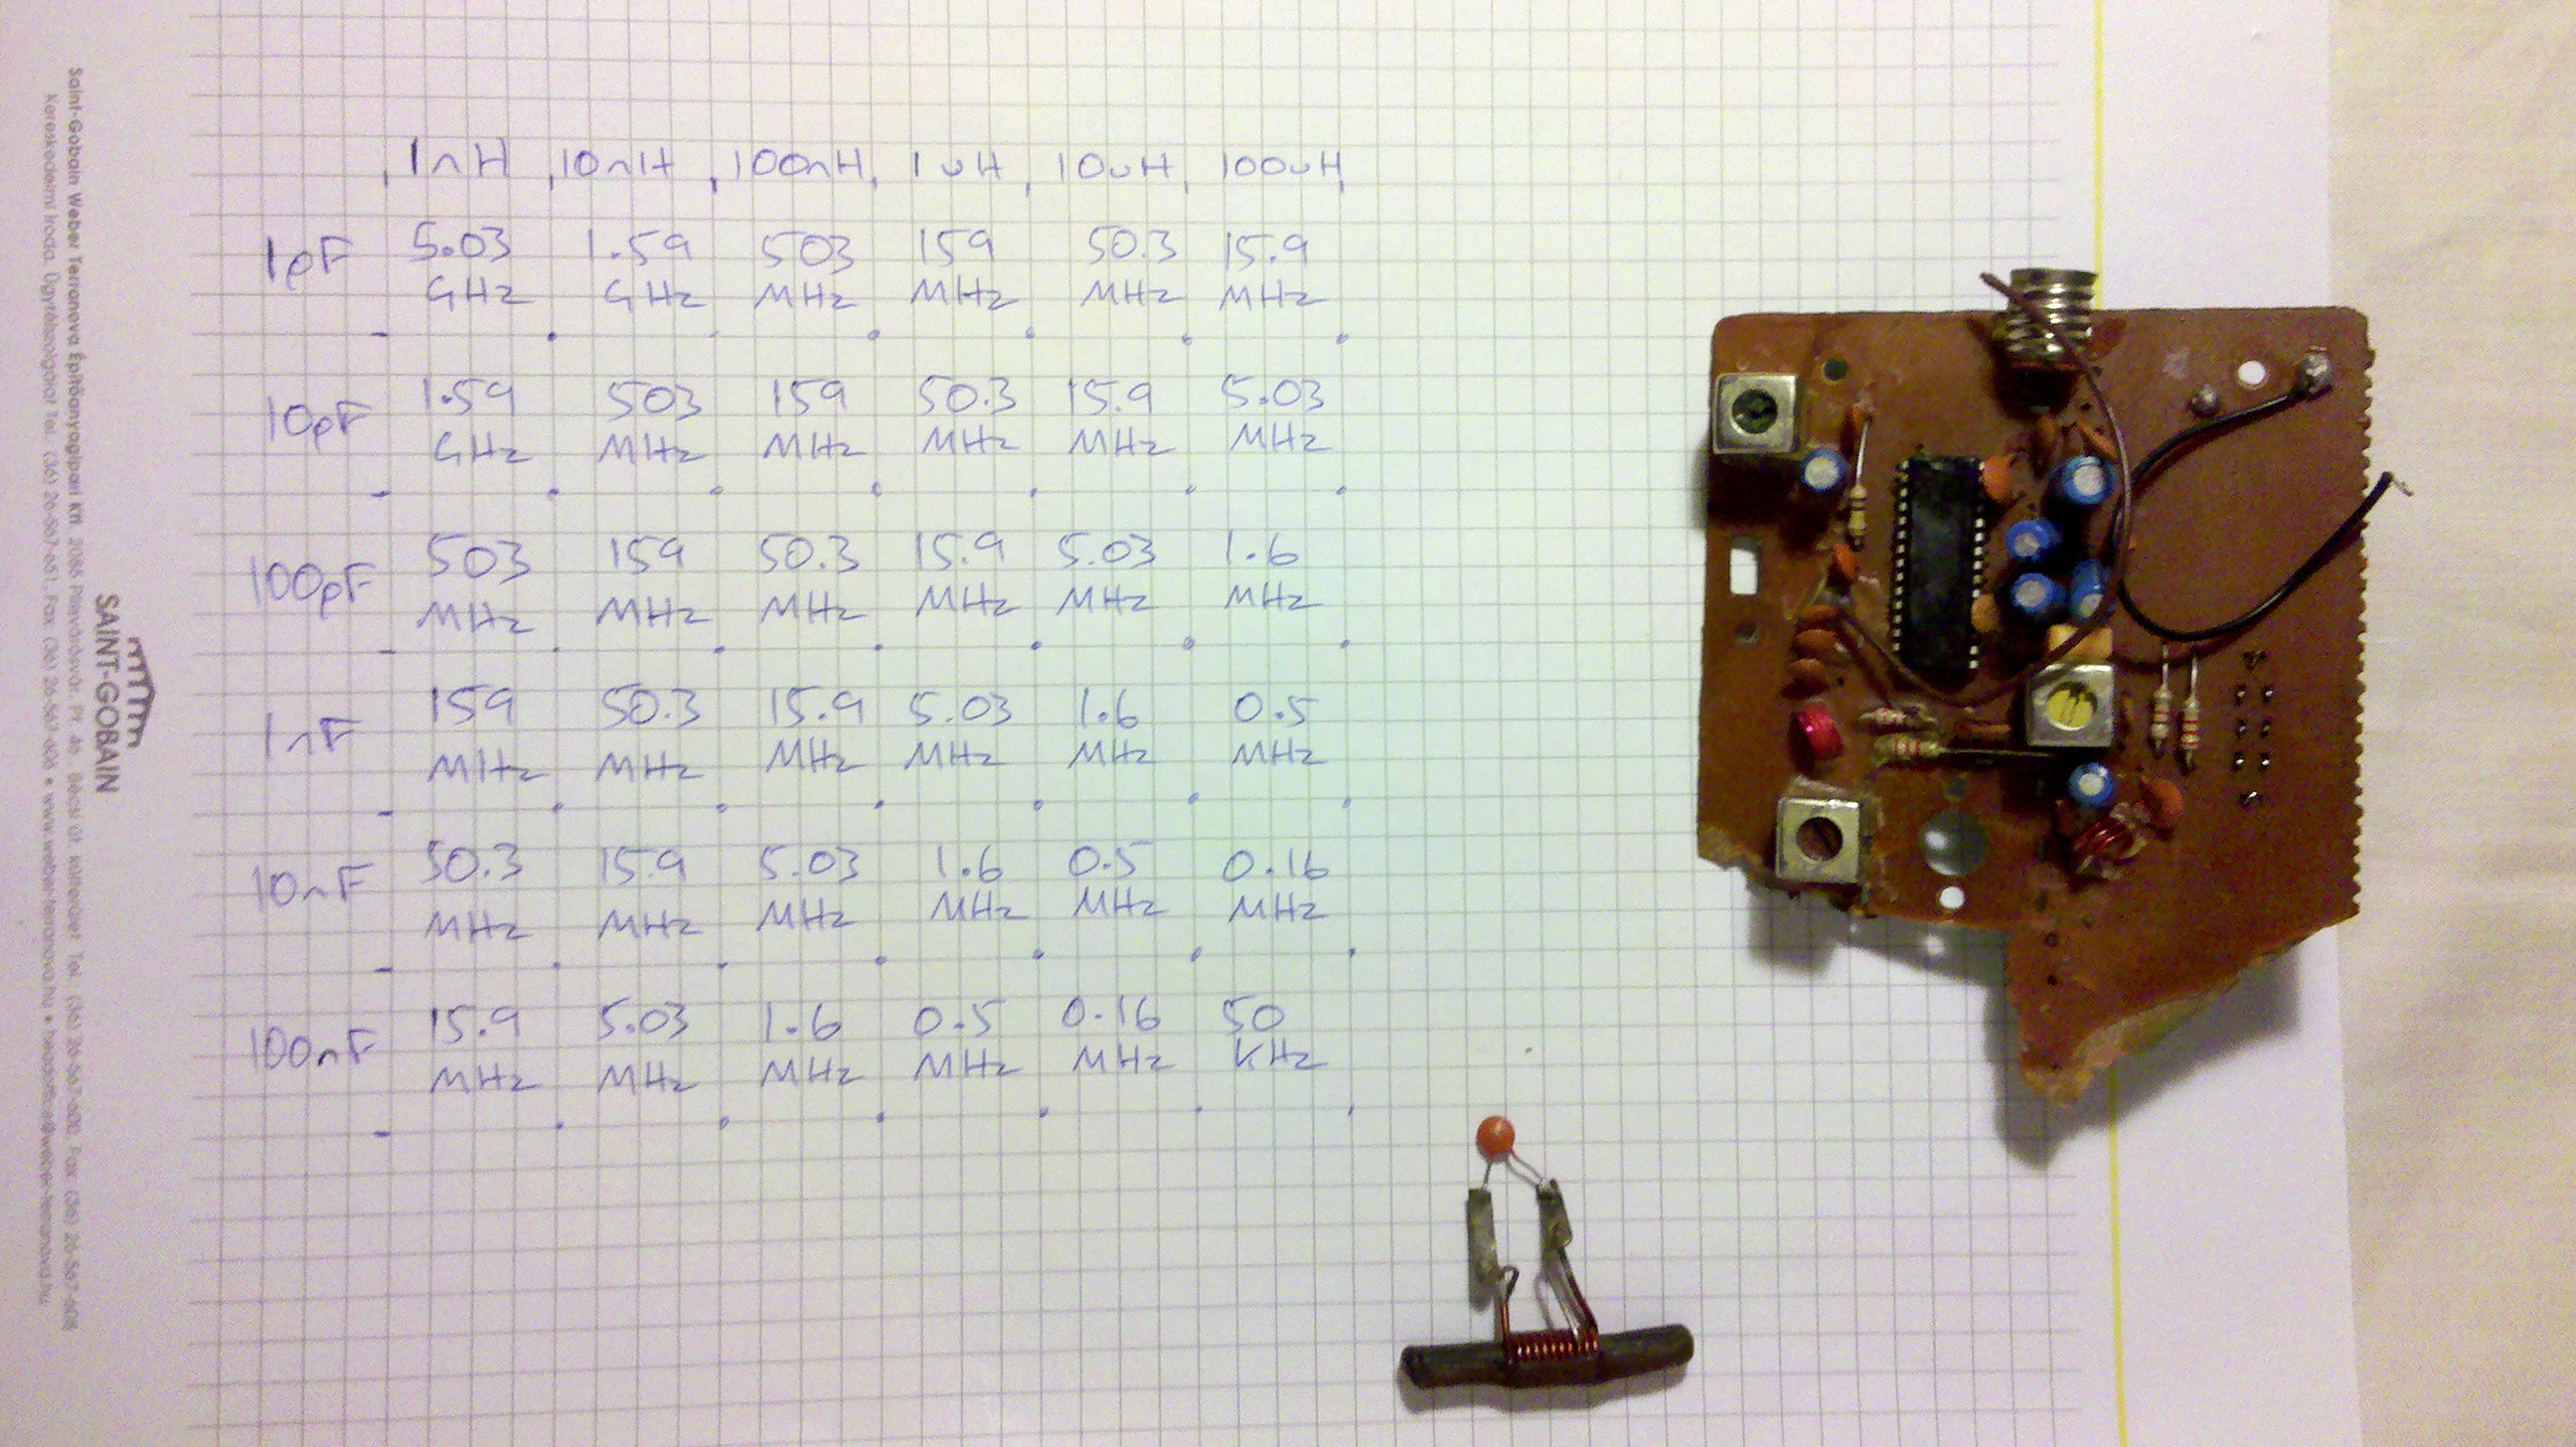 1nH 10nH 100nH 1uH 10uH 100uH
1pF 5.03 GHz 1.59 GHz 503 MHz 159 MHz 50.3 MHz 15.9 MHz
10pF 1.59 GHz 503 MHz 159 MHz 50.3 MHz 15.9 MHz 5.03 MHz
100pF 503 MHz 159 MHz 50.3 MHz 15.9 MHz 5.03 MHz 1.6 MHz
1nF 159 MHz 50.3 MHz 15.9 MHz 5.03 MHz 1.6 MHz 0.5 MHz
10nF 50.3 MHz 15.9 MHz 5.03 MHz 1.6 MHz 0.5 MHz 0.16 MHz
100nF 15.9 MHz 5.03 MHz 1.6 MHz 0.5 MHz 0.16 MHz 50 KHz
SAINT-GOBAIN
Saint-Gobain Weber Terranova Építőanyagipari Kft. 2085 Pilisvörösvár, Pf. 46. Bécsi út Tel.: (36) 26-567-600, Fax: (36) 26-567-608
Kereskedelmi Iroda, Ügyfélszolgálat Tel.: (36) 26-567-651, Fax: (36) 26-567-606 • www.weber-terranova.hu • headoffice@weber-terranova.hu